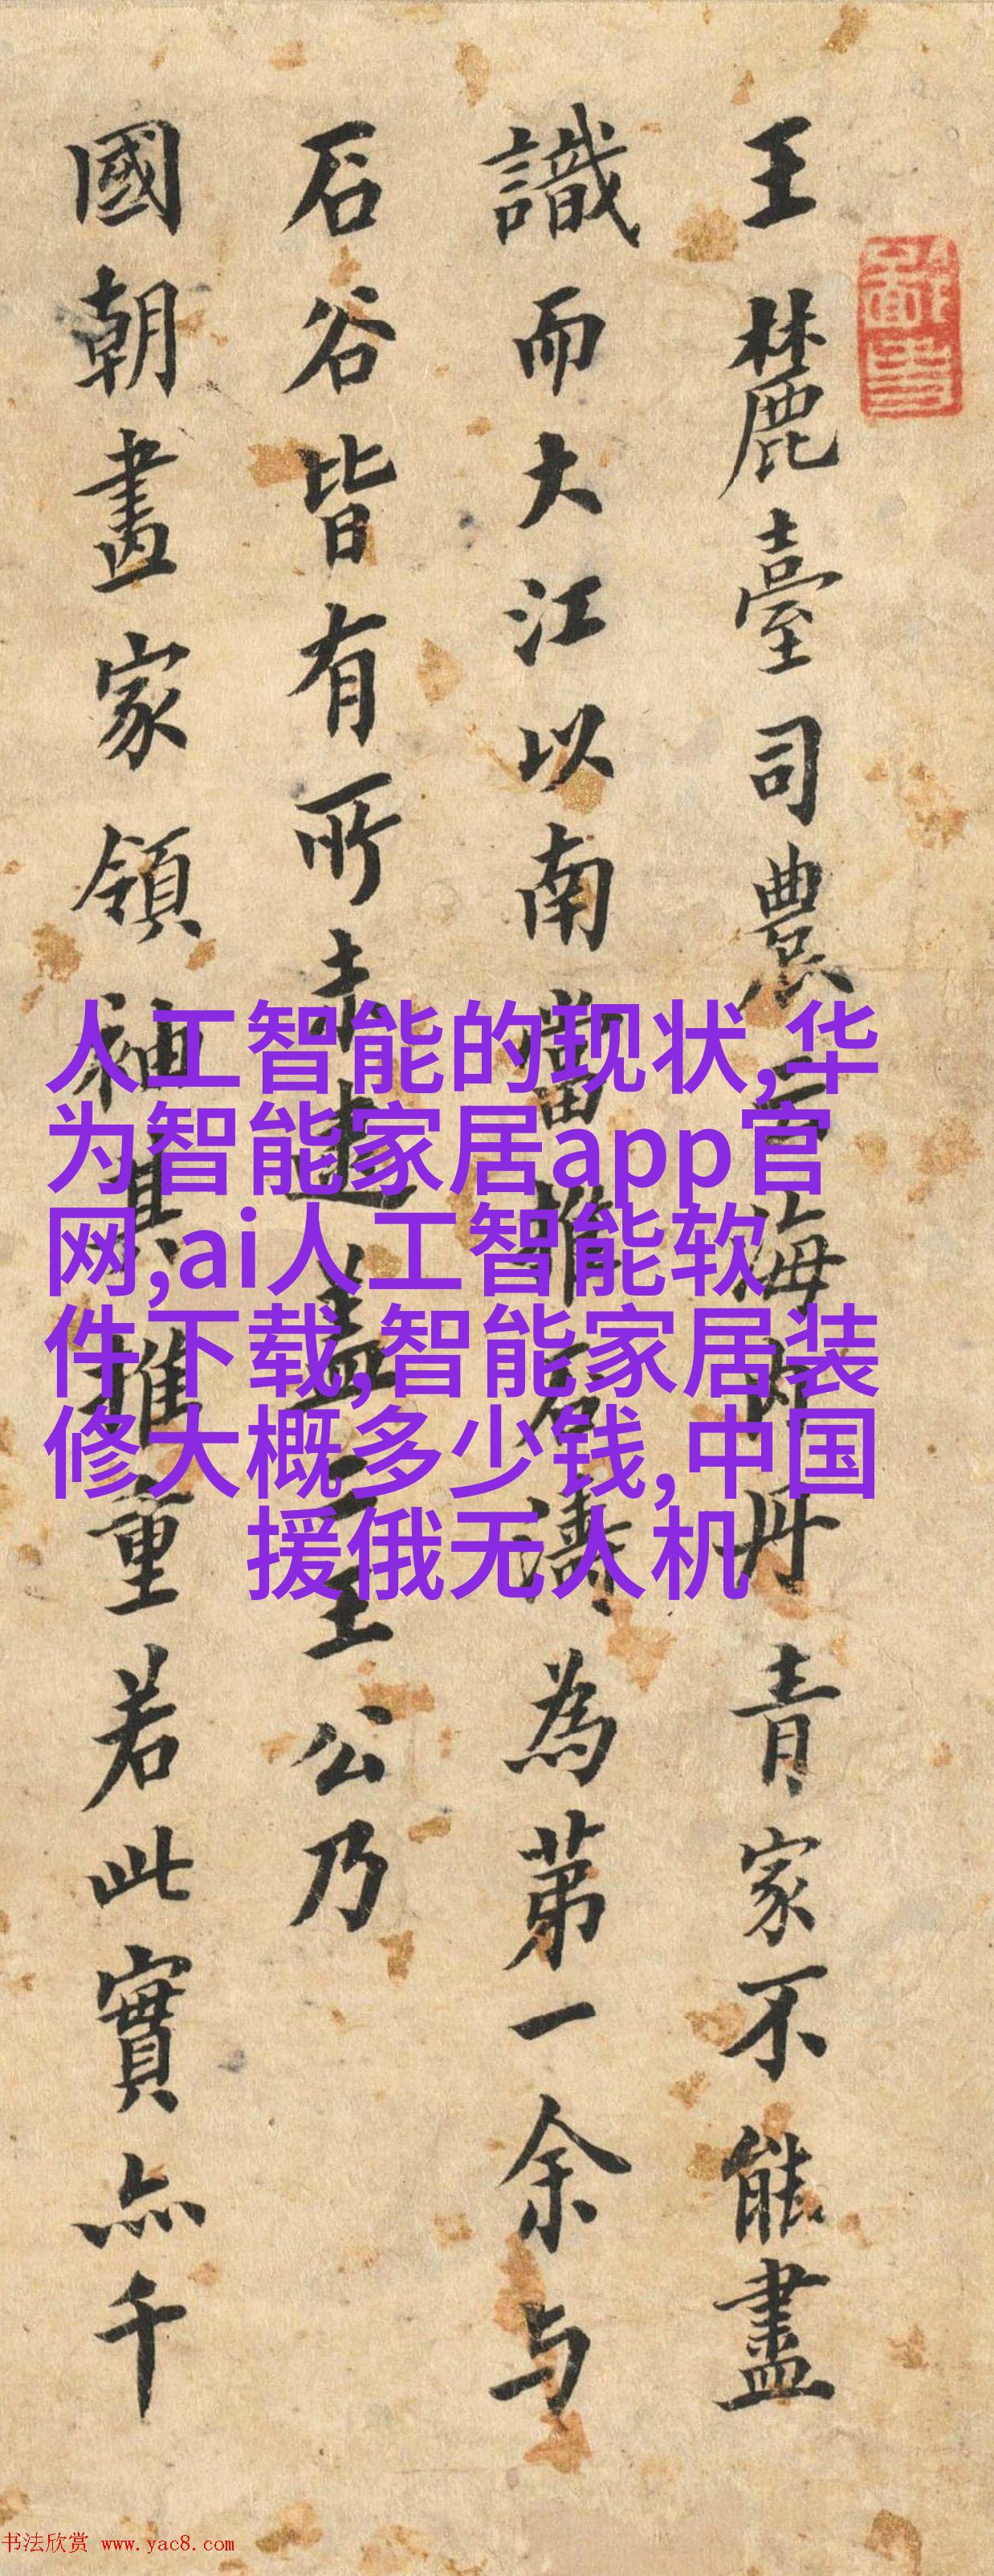 王麓臺司農云海内丹青家不能盡
識而大江以南當推石濤為第一余与
石谷皆有所未逮盖王公乃
國朝畫家領袖其推重若此實亦千
人工智能的现状,华
为智能家居app官
网,ai人工智能软
件下载,智能家居装
修大概多少钱,中国
援俄无人机
书法欣赏 www.yac8.com